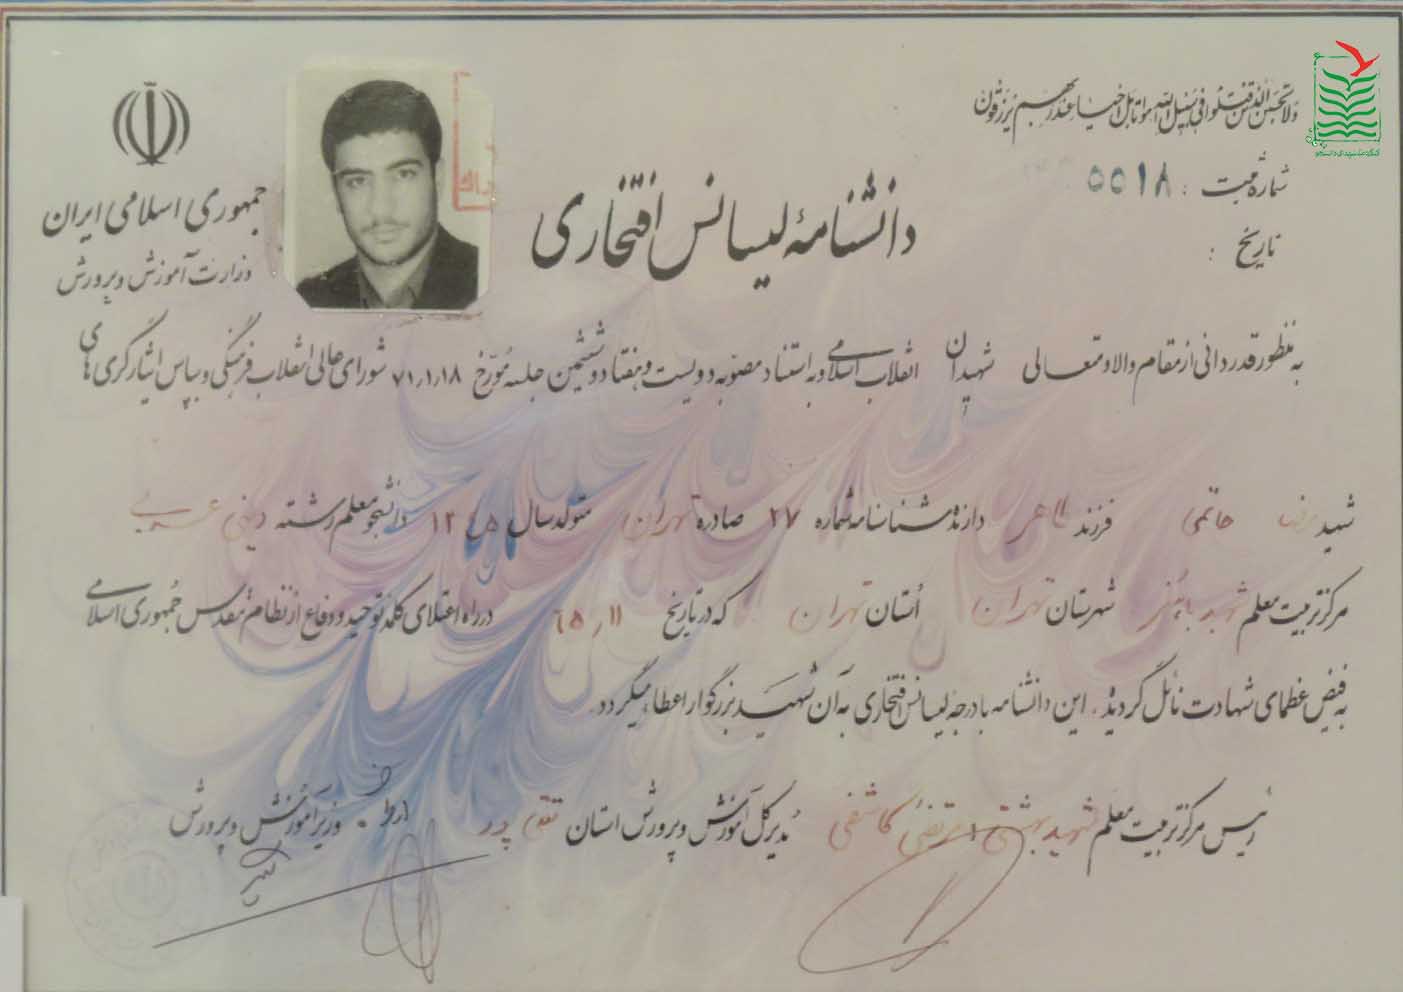 ولا تحسبن الذین قتلوا فی سبیل الله امواتا بل احیاء عند ربهم یرزقون
کنگره ملی شهدای دانشجو
شماره ثبت : ۵۵۱۸
تاریخ :
جمهوری اسلامی ایران
وزارت آموزش و پرورش
دانشنامهٔ لیسانس افتخاری
به منظور قدردانی از مقام والا و متعالی شهیدان انقلاب اسلامی و به استناد مصوبه دویست و هفتاد و ششمین جلسه مورخ ۷۱،۱،۱۸ شورای عالی انقلاب فرهنگی و بپاس ایثارگری های
شهید حاتمی فرزند طاهر دارنده شناسنامه شماره ۲۷ صادره تهران متولد سال ۱۳۴۵ دانشجو معلم رشته دینی عربی
مرکز تربیت معلم شهید باهنر شهرستان تهران استان تهران که در تاریخ ۶۵،۱۱ در راه اعتلای کلمه توحید و دفاع از نظام مقدس جمهوری اسلامی
به فیض عظمای شهادت نائل گردید. این دانشنامه با درجه لیسانس افتخاری به آن شهید بزرگوار اعطاء میگردد.
رئیس مرکز تربیت معلم شهید بهشتی مرتضی کاشفی
مدیرکل آموزش و پرورش استان
از طرف وزیر آموزش و پرورش